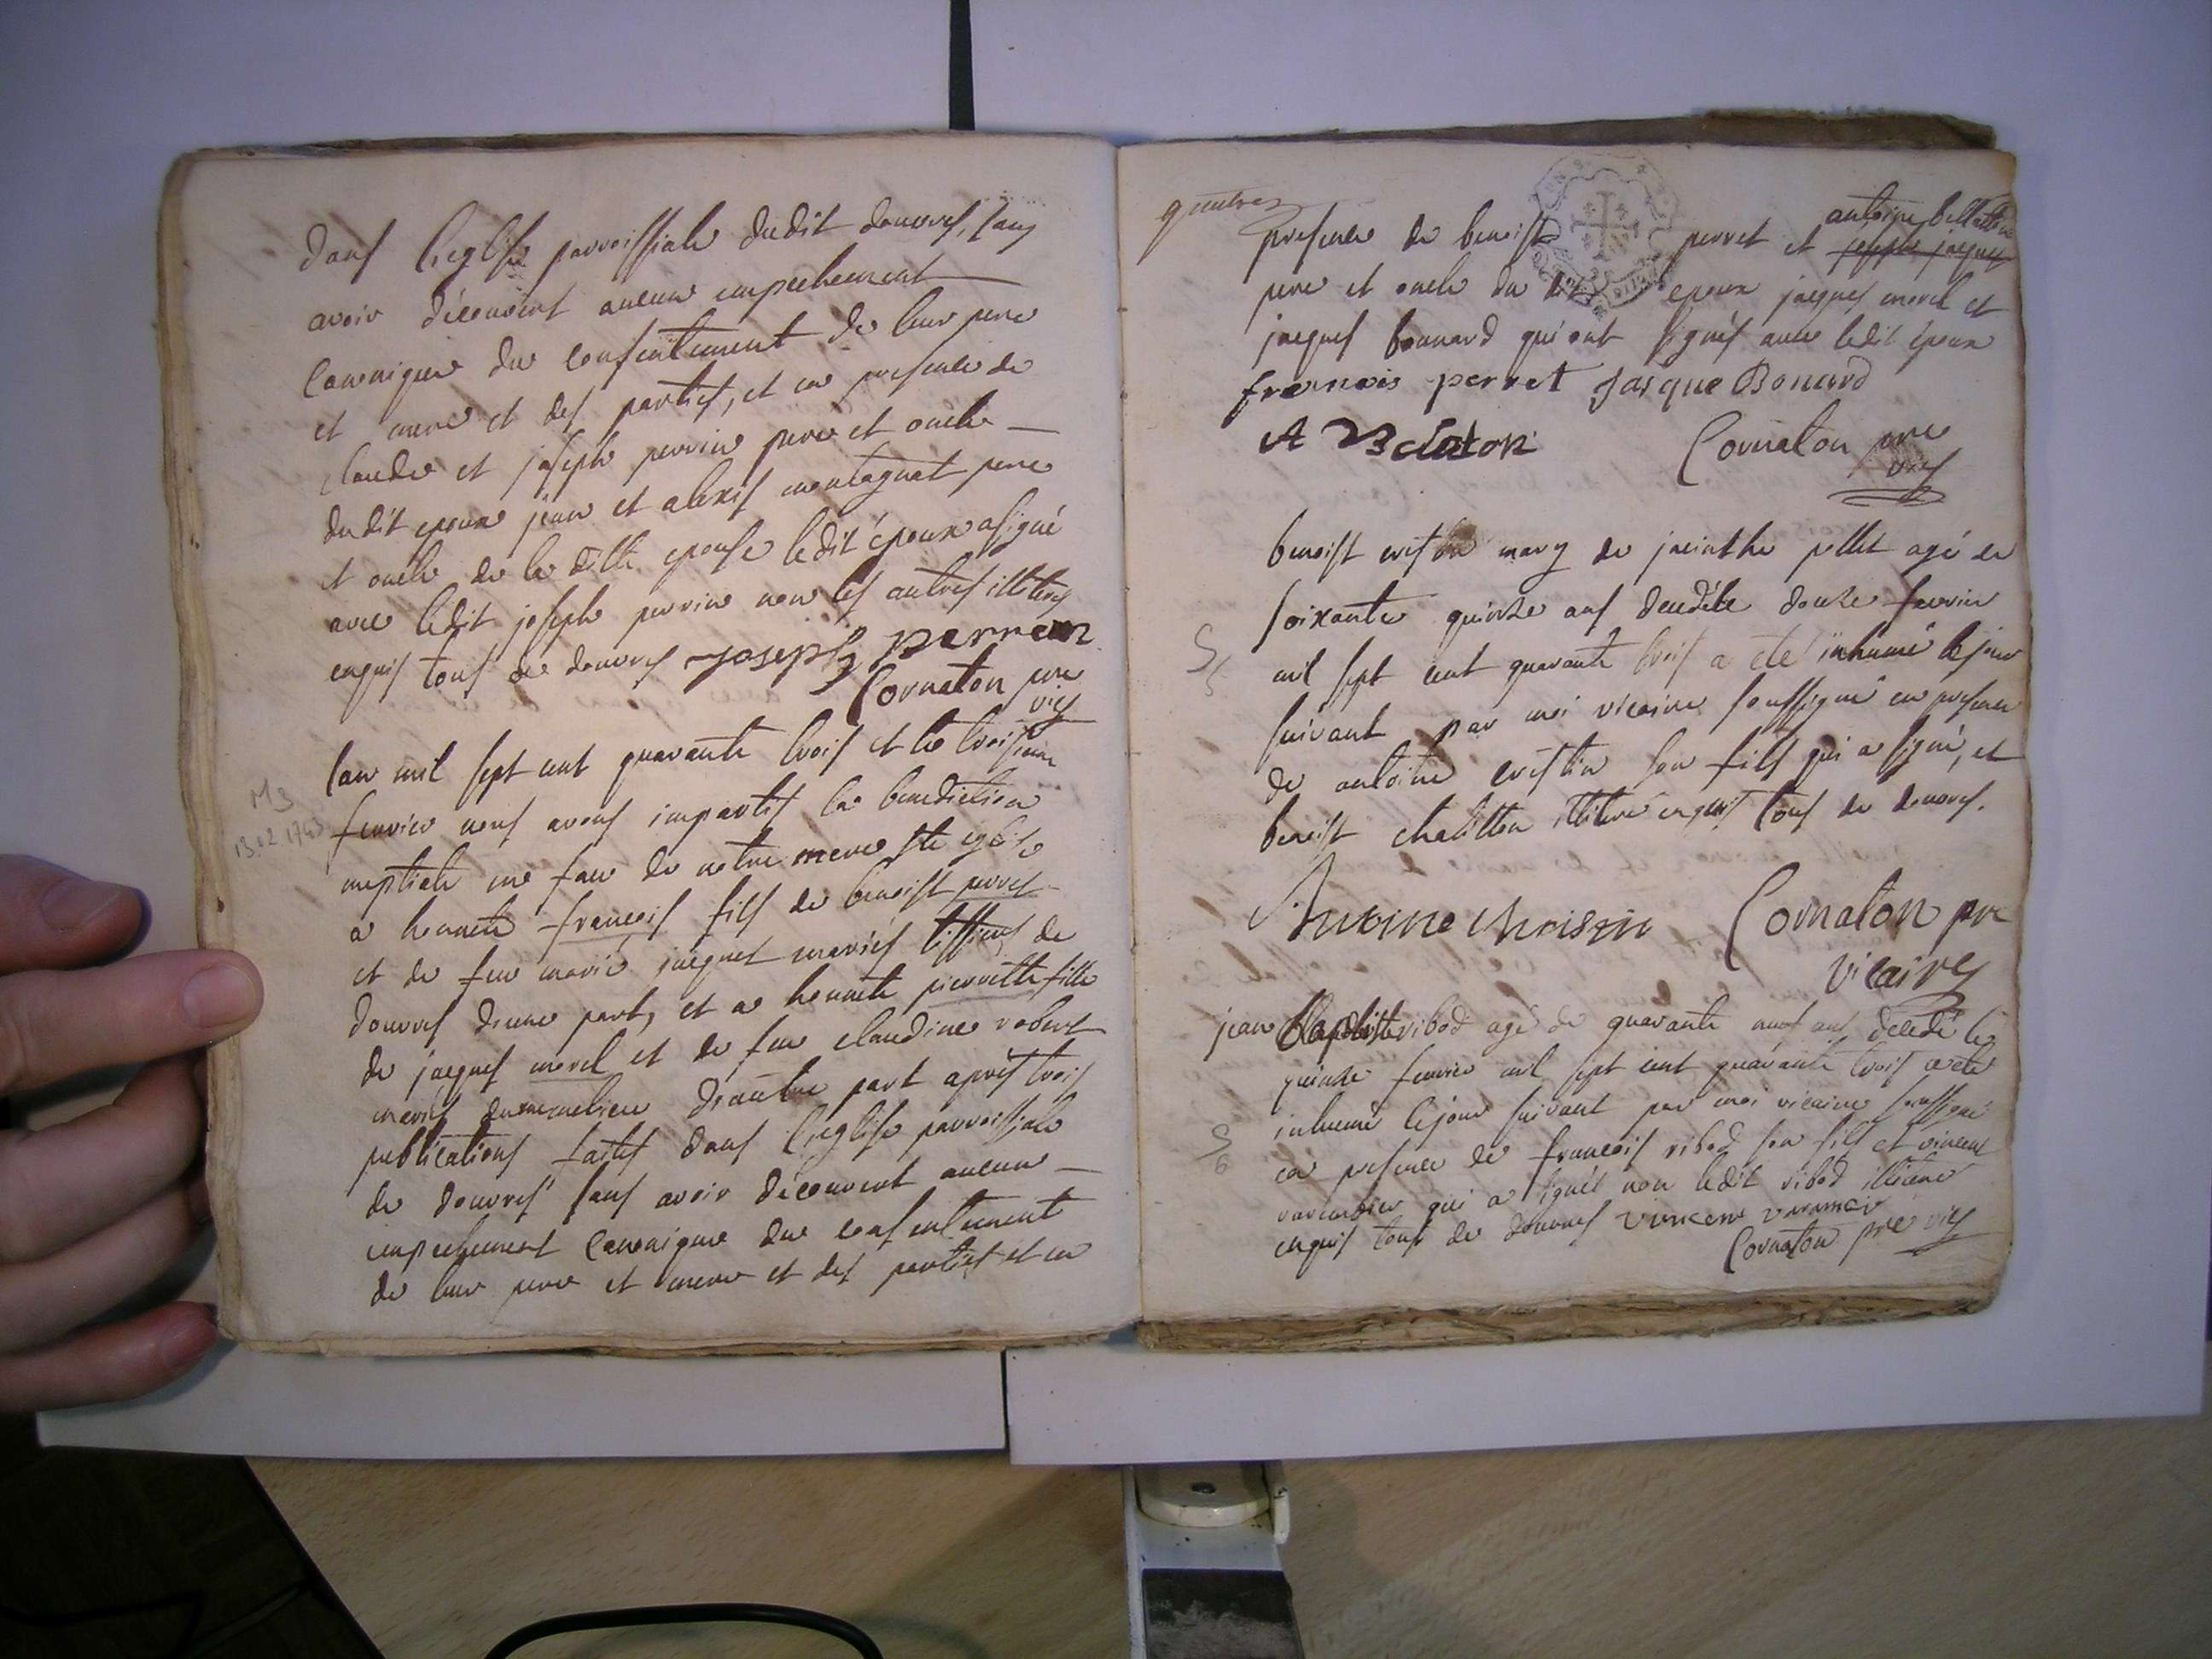 dans l'eglise parroissiale dudit douvres, sans
avoir découvert aucun empechement
canonique du consentement de leur pere
et mere et des parties, et en presence de
claude et joseph perrin pere et oncle
dudit epoux jean et alexis montagnat pere
et oncle de la ditte epouse ledit époux a signé
avec ledit joseph perrin non les autres illiterés
enquis tous de douvres joseph perren
Cornaton pre
vics
M3
13.02 1743
lan mil sept cent quarante trois et le treisieme
fevrier nous avons impartis la benediction
nuptiale en face de notre mere ste eglise
a honnete francois fils de benoist perret
et de feu marie jacquet mariés tissiens de
douvres d'une part, et a honnete pierrette fille
de jacques morel et de feu claudine robert
mariés dumemelieu d'autre part après trois
publications faites dans l'eglise parroissiale
de douvres sans avoir découvert aucun
empechement canonique du consentement
de leur pere et mere et des parties et en
quatres
presence de benoist perret et antoine bellatton
joseph jacques
pere et oncle du dit epoux jacques morel et
jacques bonnard qui ont signés avec ledit epoux
francois perret Jasque Bonard
A Belaton Cornaton pre
vics
benoist cristin mary de jacinthe pellet agé de
soixante quinze ans decédé le douze fevrier
S5
mil sept cent quarante trois a eté inhumé le jour
suivant par moi vicaire soussigné en presence
de antoine cristin son fils qui a signé, et
benoist chatillon illiteré enquis tous de douvres.
Antoine Chrisin Cornaton pre
vicaires
jean Baptiste ribod agé de quarante neuf ans decedé le
quinze fevrier mil sept cent quarante trois a eté
inhumé le jour suivant par moi vicaire soussigné
S6
en presence de francois ribod son fils et vincent
qui a signés non ledit ribod illiteré
enquis tous de douvres vincent
Cornaton pre vics